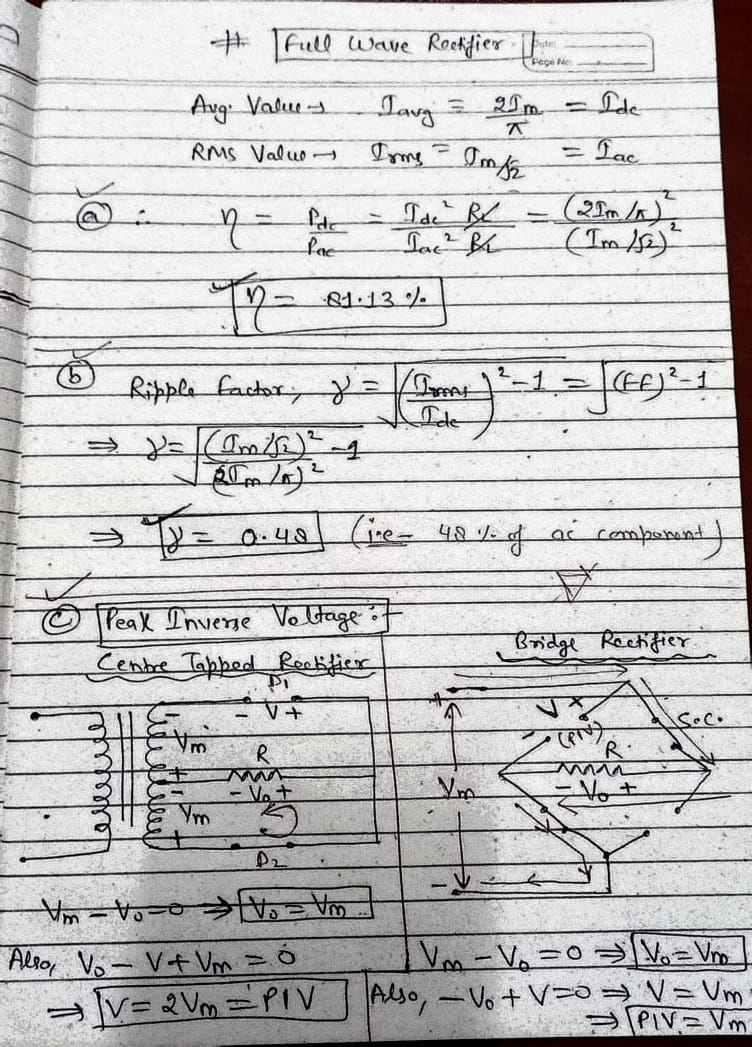 # Full Wave Rectifier
Date:
Page No:
Avg. Value → Iavg = 2Im/π = Idc
RMS Value → Irms = Im/√2 = Iac
(a) ∴ η = Pdc/Pac = Idc² RL/Iac² RL = (2Im/π)²/(Im/√2)²
η = 81.13 %
(b) Ripple factor, γ = √((Irms/Idc)² - 1) = √((FF)² - 1)
⇒ γ = √((Im/√2)²/(2Im/π)² - 1)
⇒ γ = 0.48 (i.e- 48 % of ac component)
(c) Peak Inverse Voltage :-
Centre Tapped Rectifier
D1
- V +
-
Vm
R
+
- Vo +
-
Vm
+
D2
Vm - Vo = 0 ⇒ Vo = Vm
Also, Vo - V + Vm = 0
⇒ V = 2Vm = PIV
Bridge Rectifier
+
V
+
S.C.
-
(PIV)
R
Vm
- Vo +
-
Vm - Vo = 0 ⇒ Vo = Vm
Also, - Vo + V = 0 ⇒ V = Vm
⇒ PIV = Vm